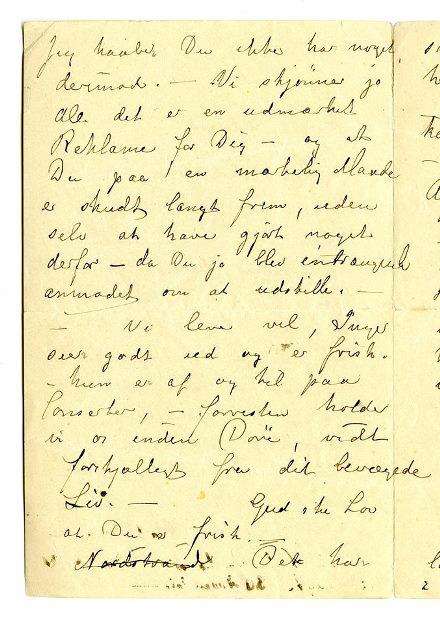 Jeg haaber Du ikke har noget
derimod. — Vi skjønner jo
alle det er en udmærket
Reklame for Dig — og at
Du paa en mærkelig Maade
er skudt langt frem, uden
selv at have gjort noget
derfor — da Du jo blev indtrængende
anmodet om at udstille. —
— Vi leve vel, Inger
seer godt ud og er frisk.
— hun er af og til paa
Conserter, — forresten holde
vi os inden Døre, vidt
forskjelligt fra dit bevægede
Liv. — Gud ske Lov
at Du er frisk. —
Nordstrand Det har
2